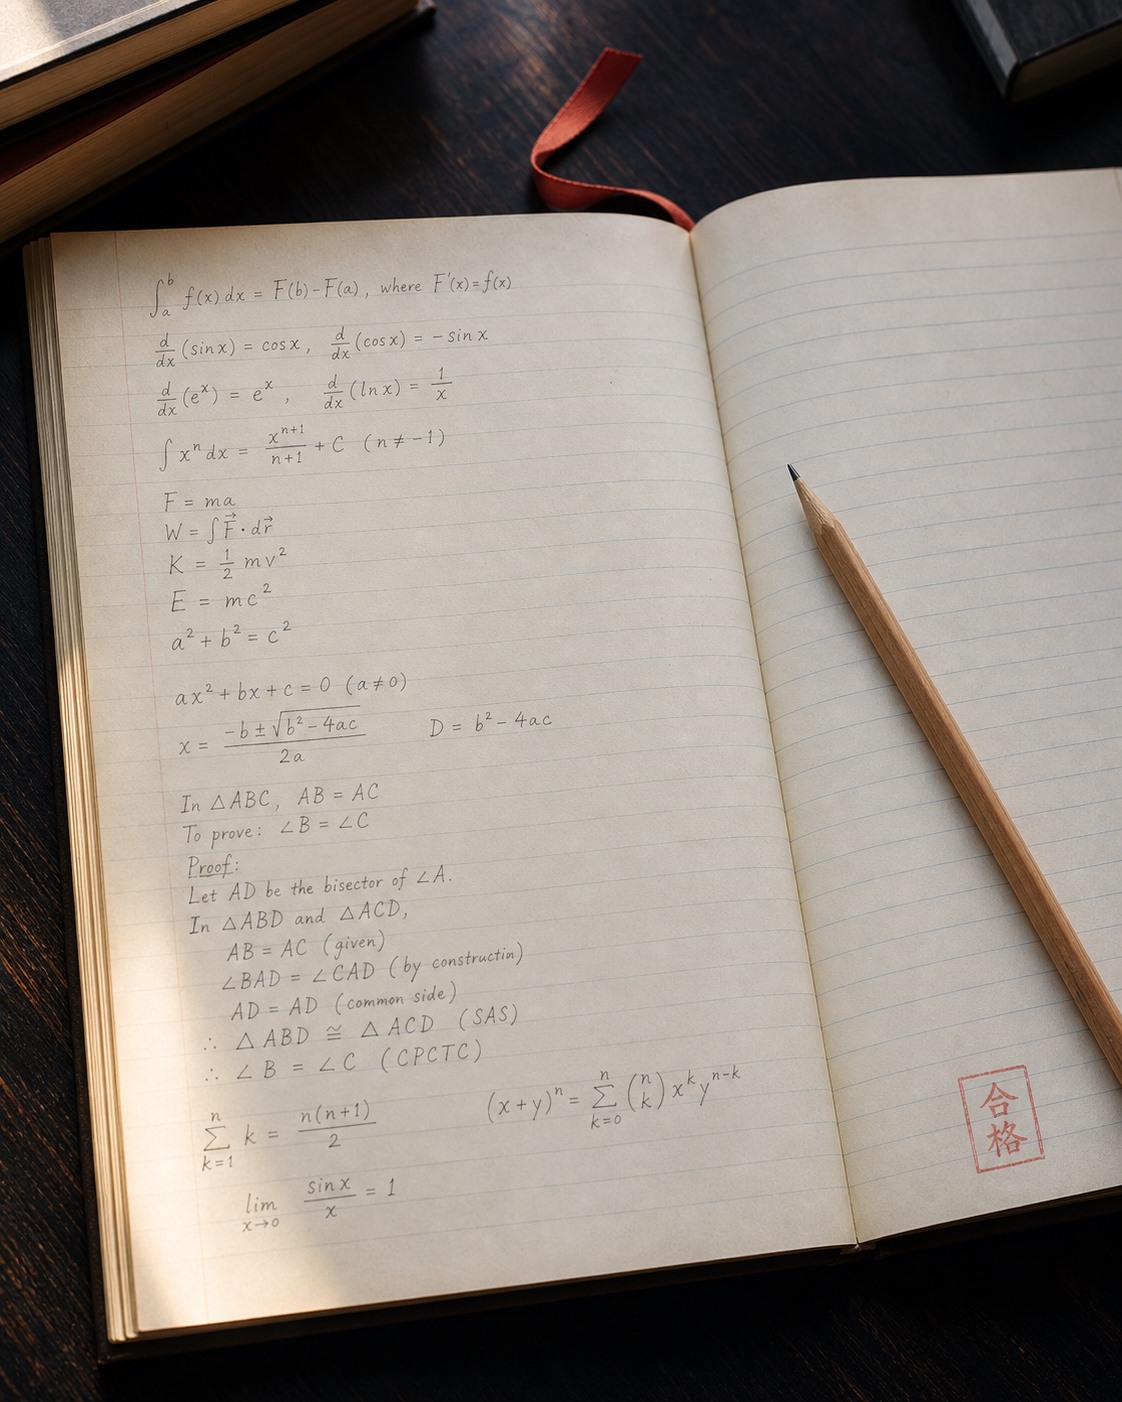 ∫_a^b f(x) dx = F(b) − F(a), where F'(x) = f(x)
d/dx (sin x) = cos x, d/dx (cos x) = − sin x
d/dx (e^x) = e^x, d/dx (ln x) = 1/x
∫ x^n dx = x^(n+1)/(n+1) + C (n ≠ −1)
F = ma
W = ∫ F⃗ · dr⃗
K = 1/2 mv²
E = mc²
a² + b² = c²
ax² + bx + c = 0 (a ≠ 0)
x = (−b ± √(b² − 4ac))/2a D = b² − 4ac
In △ABC, AB = AC
To prove: ∠B = ∠C
Proof:
Let AD be the bisector of ∠A.
In △ABD and △ACD,
AB = AC (given)
∠BAD = ∠CAD (by constructin)
AD = AD (common side)
∴ △ABD ≅ △ACD (SAS)
∴ ∠B = ∠C (CPCTC)
∑_{k=1}^n k = n(n+1)/2 (x+y)^n = ∑_{k=0}^n (n k) x^k y^(n−k)
lim_{x→0} sin x/x = 1
合格